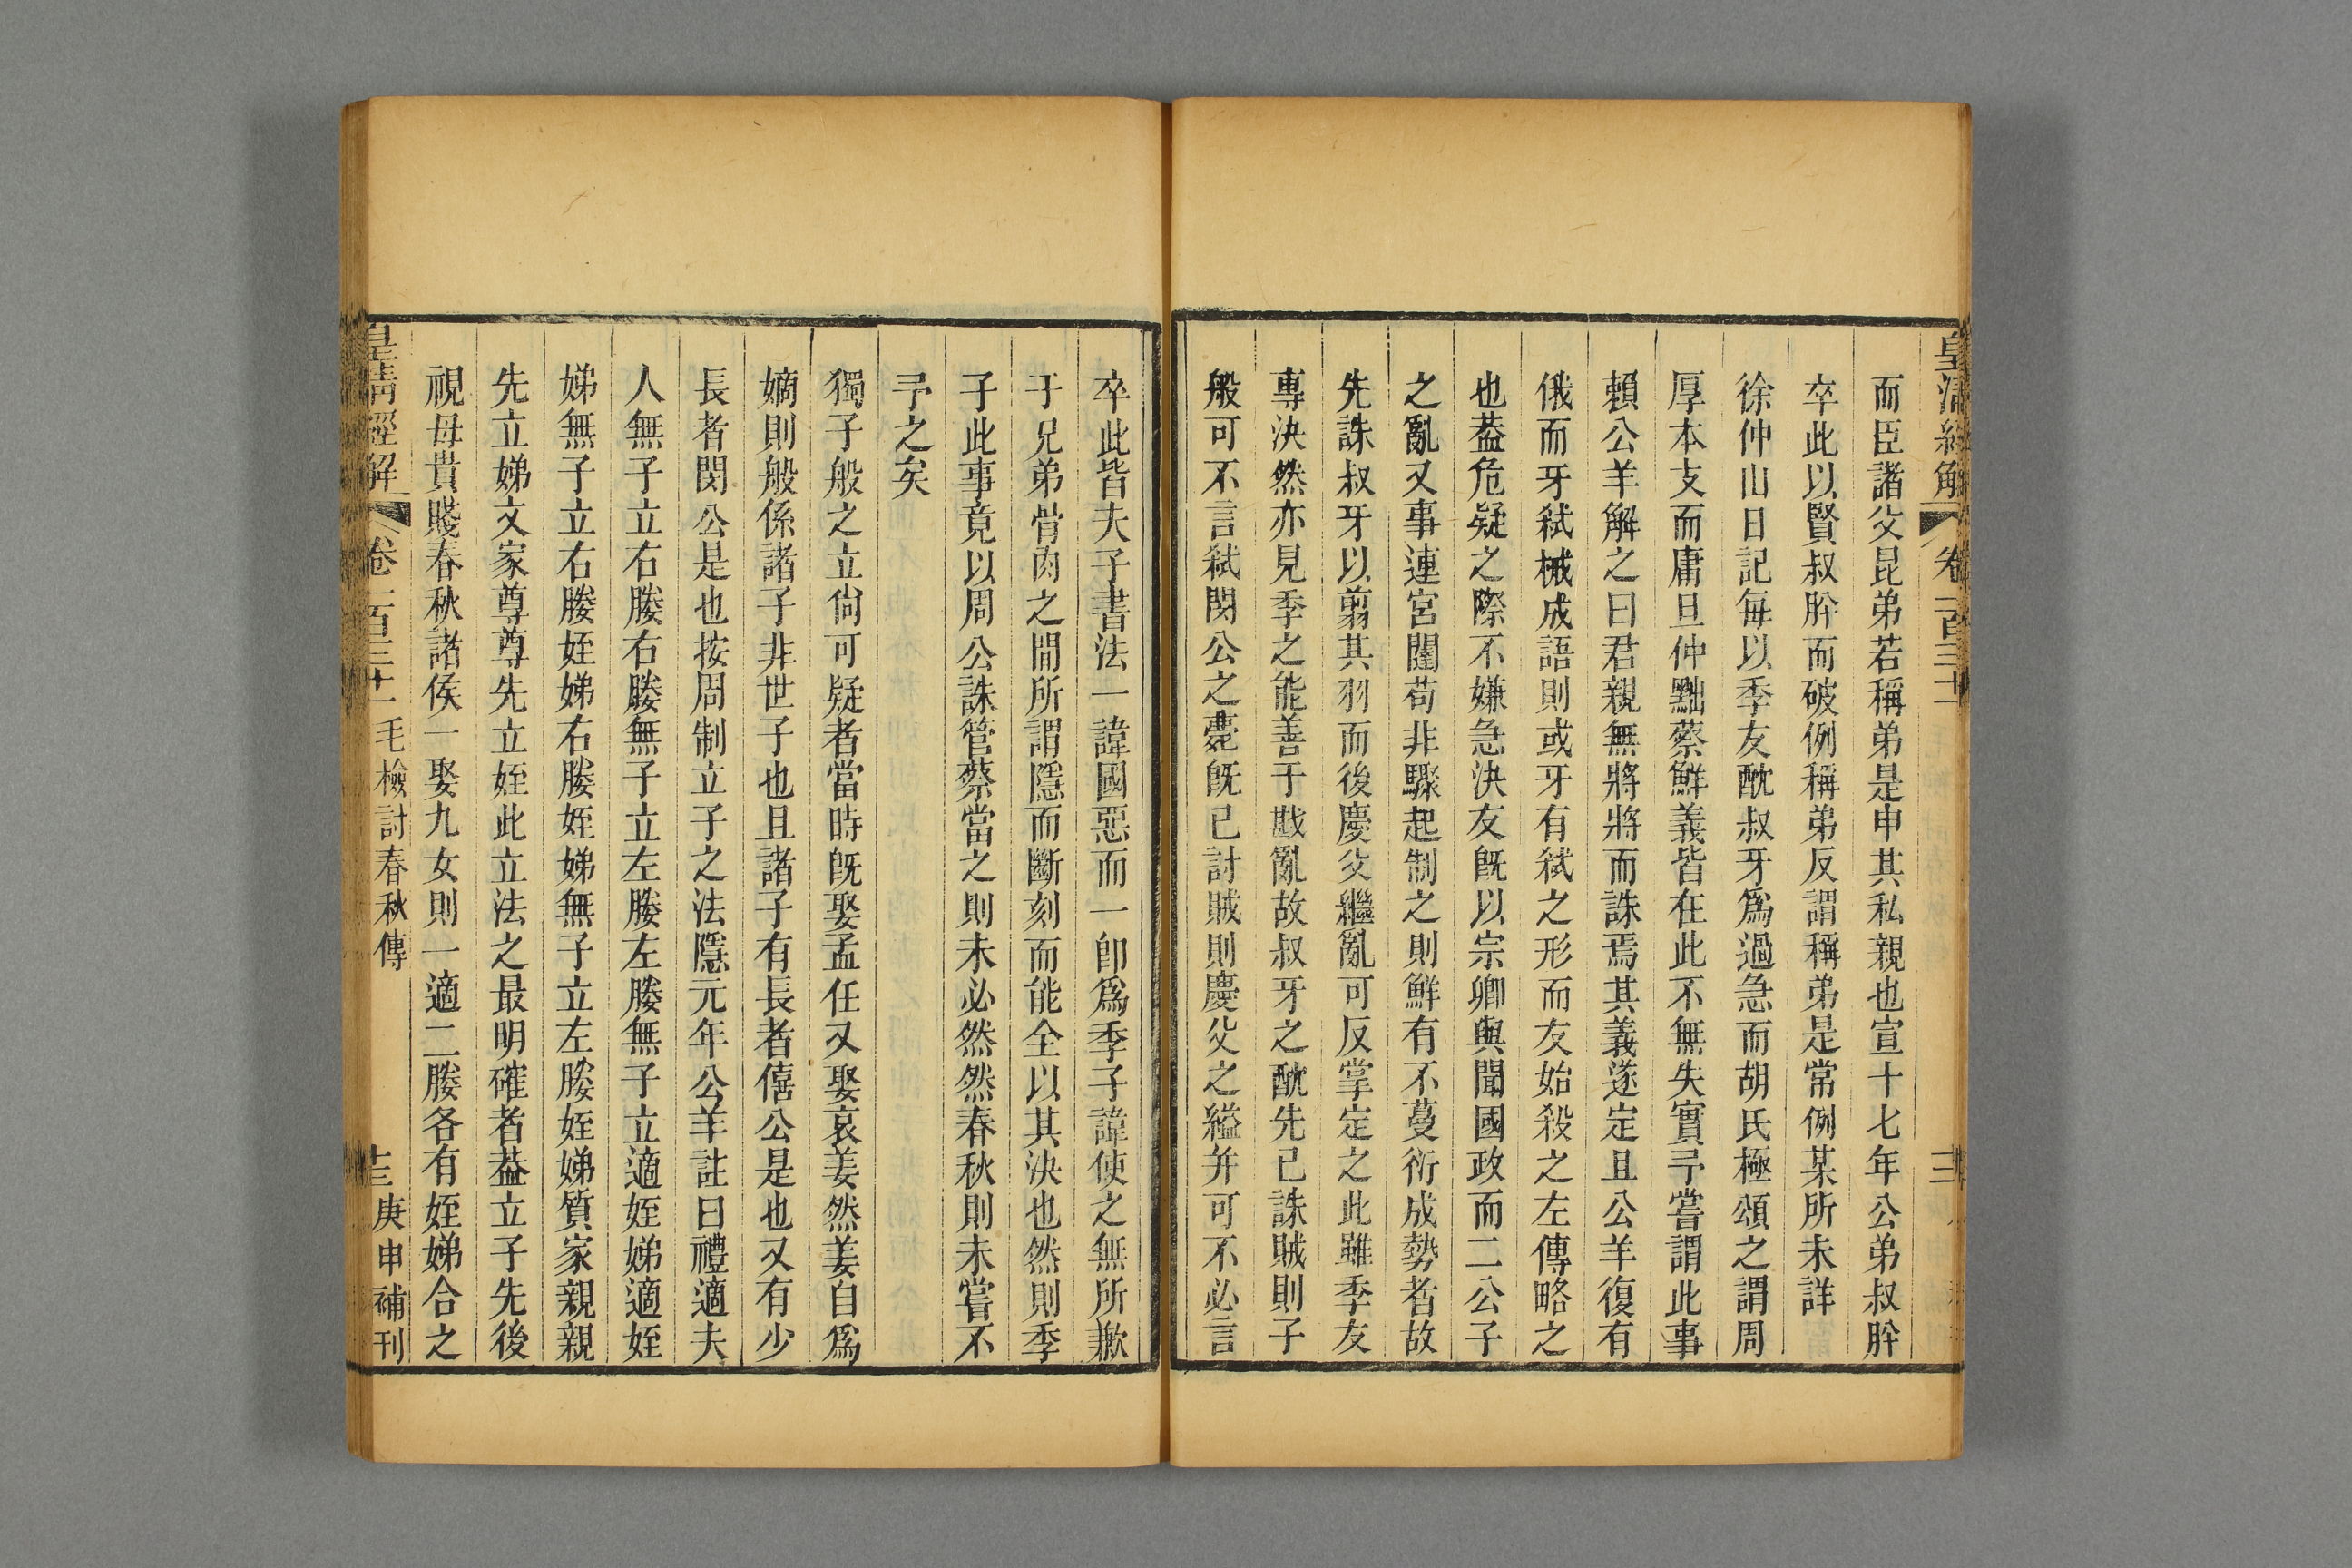 皇清經解 卷一百三十一
而臣諸父昆弟若稱弟是申其私親也宣十七年公弟叔肸
卒此以賢叔肸而破例稱弟反謂稱弟是常例某所未詳
徐仲山日記每以季友酖叔牙爲過急而胡氏極頌之謂周
厚本支而庸旦仲黜蔡鮮義皆在此不無失實予嘗謂此事
賴公羊解之曰君親無將將而誅焉其義遂定且公羊復有
俄而牙弒械成語則或牙有弒之形而友始殺之左傳略之
也葢危疑之際不嫌急決友旣以宗卿與聞國政而二公子
之亂又事連宮闈苟非驟起制之則鮮有不蔓衍成勢者故
先誅叔牙以翦其羽而後慶父繼亂可反掌定之此雖季友
專決然亦見季之能善于戡亂故叔牙之酖先已誅賊則子
般可不言弒閔公之薨旣已討賊則慶父之縊并可不必言
卒此皆夫子書法一諱國惡而一卽爲季子諱使之無所歉
于兄弟骨肉之間所謂隱而斷刻而能全以其決也然則季
子此事竟以周公誅管蔡當之則未必然然春秋則未嘗不
予之矣
獨子般之立尙可疑者當時旣娶孟任又娶哀姜然姜自爲
嫡則般係諸子非世子也且諸子有長者僖公是也又有少
長者閔公是也按周制立子之法隱元年公羊註曰禮適夫
人無子立右媵右媵無子立左媵左媵無子立適姪娣適姪
娣無子立右媵姪娣右媵姪娣無子立左媵姪娣質家親親
先立娣文家尊尊先立姪此立法之最明確者葢立子先後
視母貴賤春秋諸侯一娶九女則一適二媵各有姪娣合之
皇清經解 卷一百三十一 毛檢討春秋傳 十三 庚申補刊